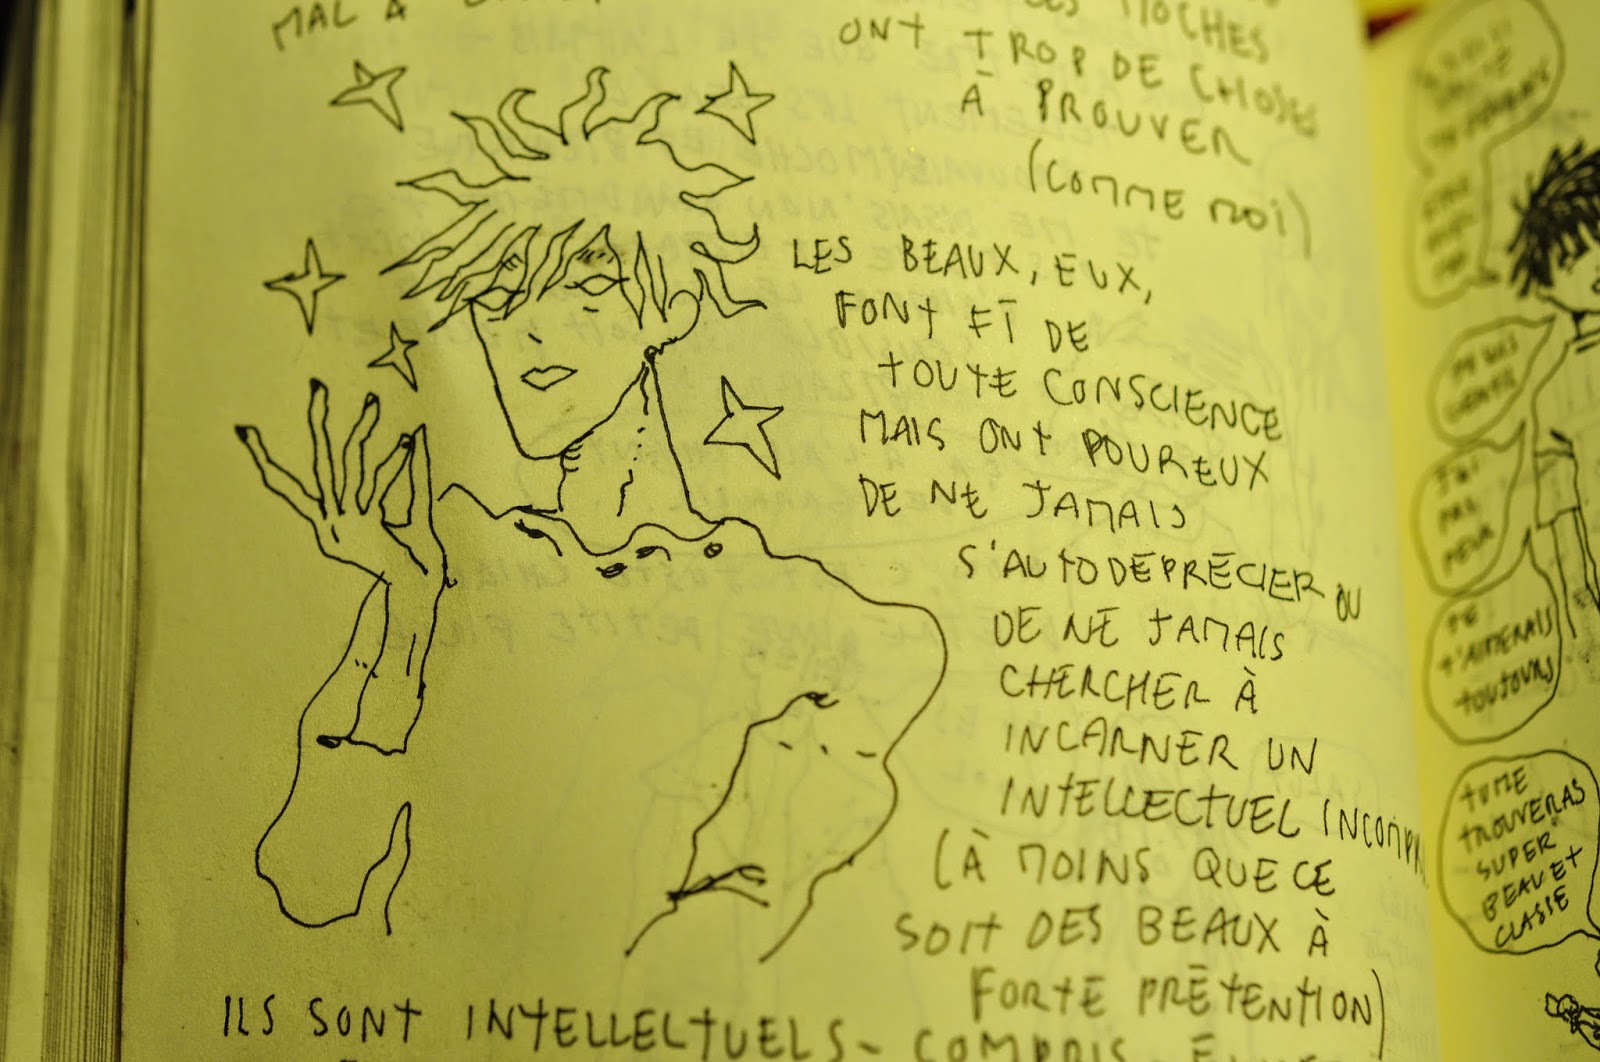 MAL À
LES MOCHES
ONT TROP DE CHOSES
À PROUVER
(COMME MOI)
LES BEAUX, EUX,
FONT FI DE
TOUTE CONSCIENCE
MAIS ONT POUR EUX
DE NE JAMAIS
S'AUTODEPRÉCIER OU
DE NE JAMAIS
CHERCHER À
INCARNER UN
INTELLECTUEL INCOMPR
(À MOINS QUE CE
SOIT DES BEAUX À
FORTE PRÉTENTION)
ILS SONT INTELLECTUELS-COMPRIS
J'AI
PAS
PEUR
JE
T'AIMERAIS
TOUJOURS
TU ME
TROUVERAS
SUPER
BEAU ET
CLASSE